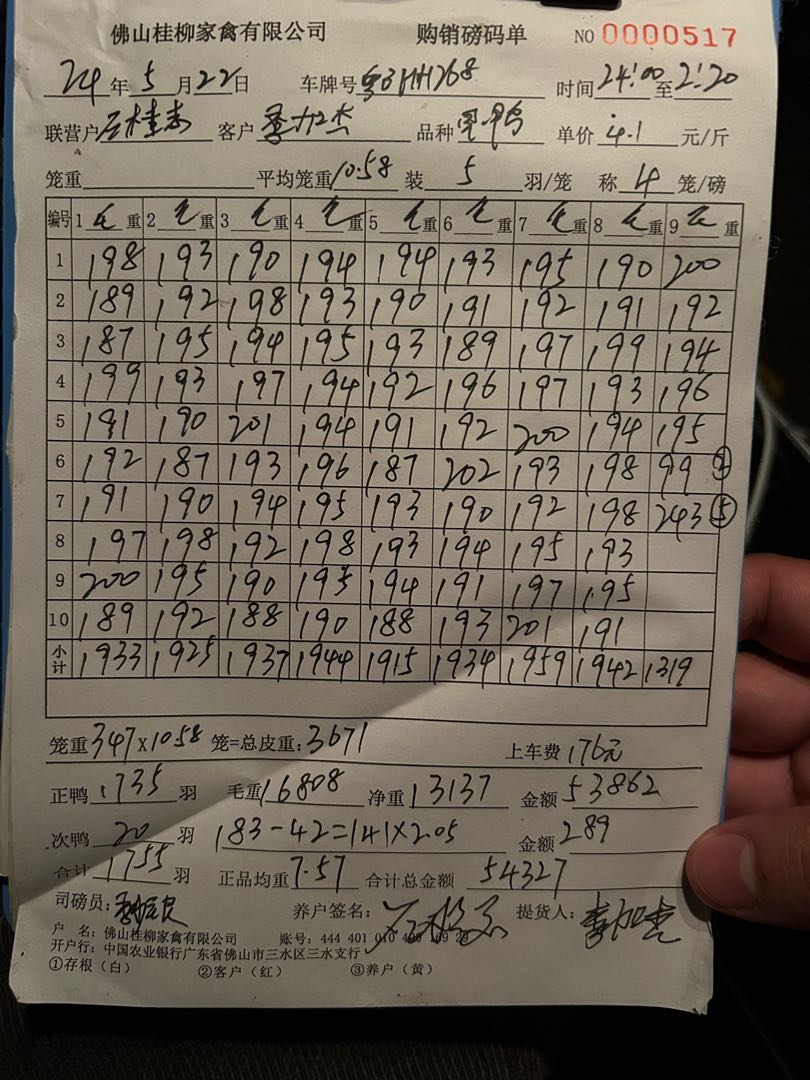 佛山桂柳家禽有限公司 购销磅码单 NO 0000517
24年5月22日 车牌号 时间24:00至2:20
联营户 客户 季加杰 品种 单价 4.1 元/斤
笼重 平均笼重10.58 装 5 羽/笼 称 4 笼/磅
编号 1 毛重 2 毛重 3 毛重 4 毛重 5 毛重 6 毛重 7 毛重 8 毛重 9 毛重
1 198 193 190 194 194 193 195 190 200
2 189 192 198 193 190 191 192 191 192
3 187 195 194 195 193 189 197 199 194
4 199 193 197 194 192 196 197 193 196
5 191 190 201 194 191 192 200 194 195
6 192 187 193 196 187 202 193 198 99
7 191 190 194 195 193 190 192 198 243 ⑤
8 197 198 192 198 193 194 195 193
9 200 195 190 195 194 191 197 195
10 189 192 188 190 188 193 201 191
小计 1933 1925 1937 1944 1915 1934 1959 1942 1319
笼重347×10.58 笼=总皮重:3671 上车费176元
正鸭1735羽 毛重16808 净重13137 金额53862
次鸭 20 羽 183-42=141×2.05 金额289
合计1755羽 正品均重7.57 合计总金额 54327
司磅员: 养户签名: 提货人:
户 名:佛山桂柳家禽有限公司 账号:444 401 010
开户行:中国农业银行广东省佛山市三水区三水支行
①存根(白) ②客户(红) ③养户(黄)